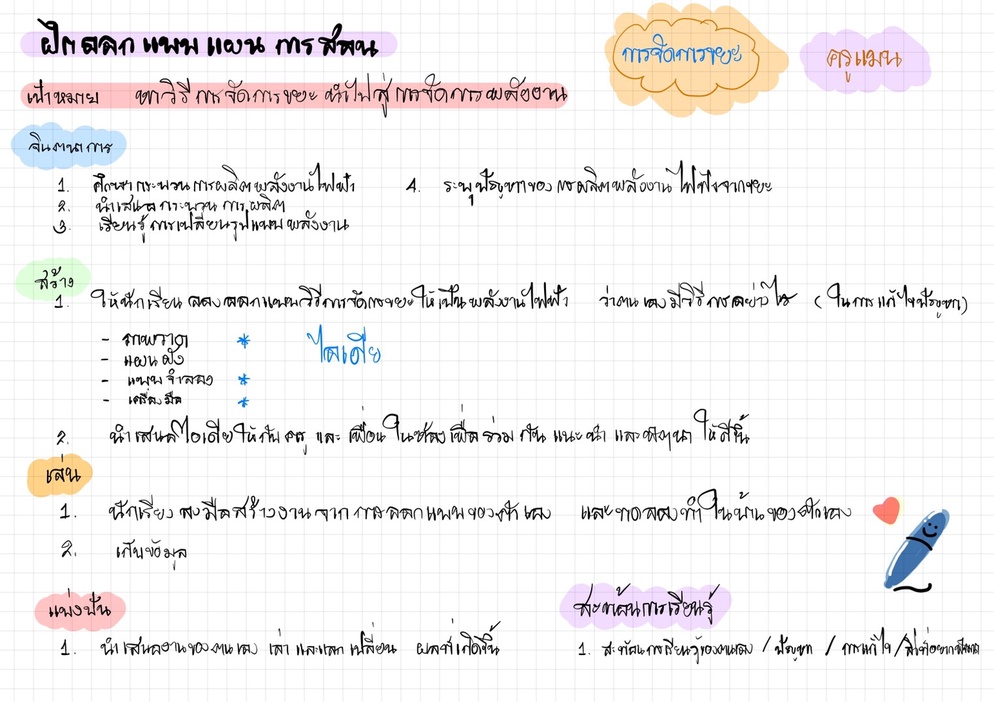 ฝึกออกแบบแผนการสอน
การจัดการขยะ
ครูแมน
เป้าหมาย หาวิธีการจัดการขยะ นำไปสู่การจัดการพลังงาน
จินตนาการ
1. ศึกษากระบวนการผลิตพลังงานไฟฟ้า
2. นำเสนอกระบวนการผลิต
3. เรียนรู้การเปลี่ยนรูปแบบพลังงาน
4. ระบุปัญหาของการผลิตพลังงานไฟฟ้าจากขยะ
สร้าง
1. ให้นักเรียนลองออกแบบวิธีการจัดการขยะให้เป็นพลังงานไฟฟ้า ว่าตนเองมีวิธีการอย่างไร (ในการแก้ไขปัญหา)
- ภาพวาด *
- แผนผัง
- แบบจำลอง *
- เครื่องมือ *
ไอเดีย
2. นำเสนอไอเดียให้กับครู และเพื่อนในห้องเพื่อร่วมกันแนะนำและพัฒนาให้ดีขึ้น
เล่น
1. นักเรียนลงมือสร้างงานจากการออกแบบของตัวเอง และทดลองทำในบ้านของตัวเอง
2. เก็บข้อมูล
แบ่งปัน
1. นำเสนองานของตนเอง เล่าและแลกเปลี่ยน ผลที่เกิดขึ้น
สะท้อนการเรียนรู้
1. สะท้อนการเรียนรู้ของตนเอง / ปัญหา / การแก้ไข / สิ่งที่อยากพัฒนา